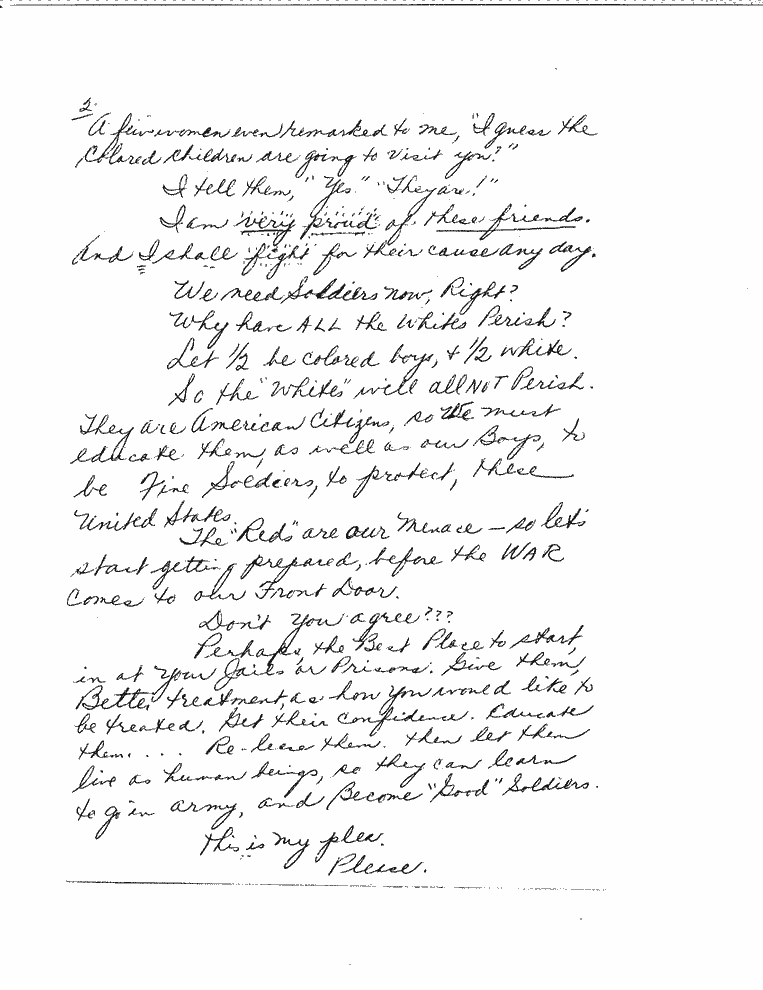 2.
A few women even remarked to me, "I guess the
Colored Children are going to visit you?"
I tell them, "Yes." "They are!"
I am "very proud" of these friends.
And I shall "fight" for their cause any day.
We need Soldiers now, Right?
Why have ALL the Whites Perish?
Let 1/2 be colored boys, + 1/2 white.
So the "Whites" will all NOT Perish.
They are American Citizens, so we must
educate them, as well as our Boys, to
be Fine Soldiers, to protect, these
United States.
The "Reds" are our Menace - so let's
start getting prepared, before the WAR
Comes to our Front Door.
Don't you agree???
Perhaps, the Best Place to start,
in at your Jails or Prisons. Give them,
Better treatment, as how you would like to
be treated. Get their Confidence. Educate
them. . . . Re-lease them. then let them
live as human beings, so they can learn
to go in army, and Become "Good" Soldiers.
This is my plea.
Please.